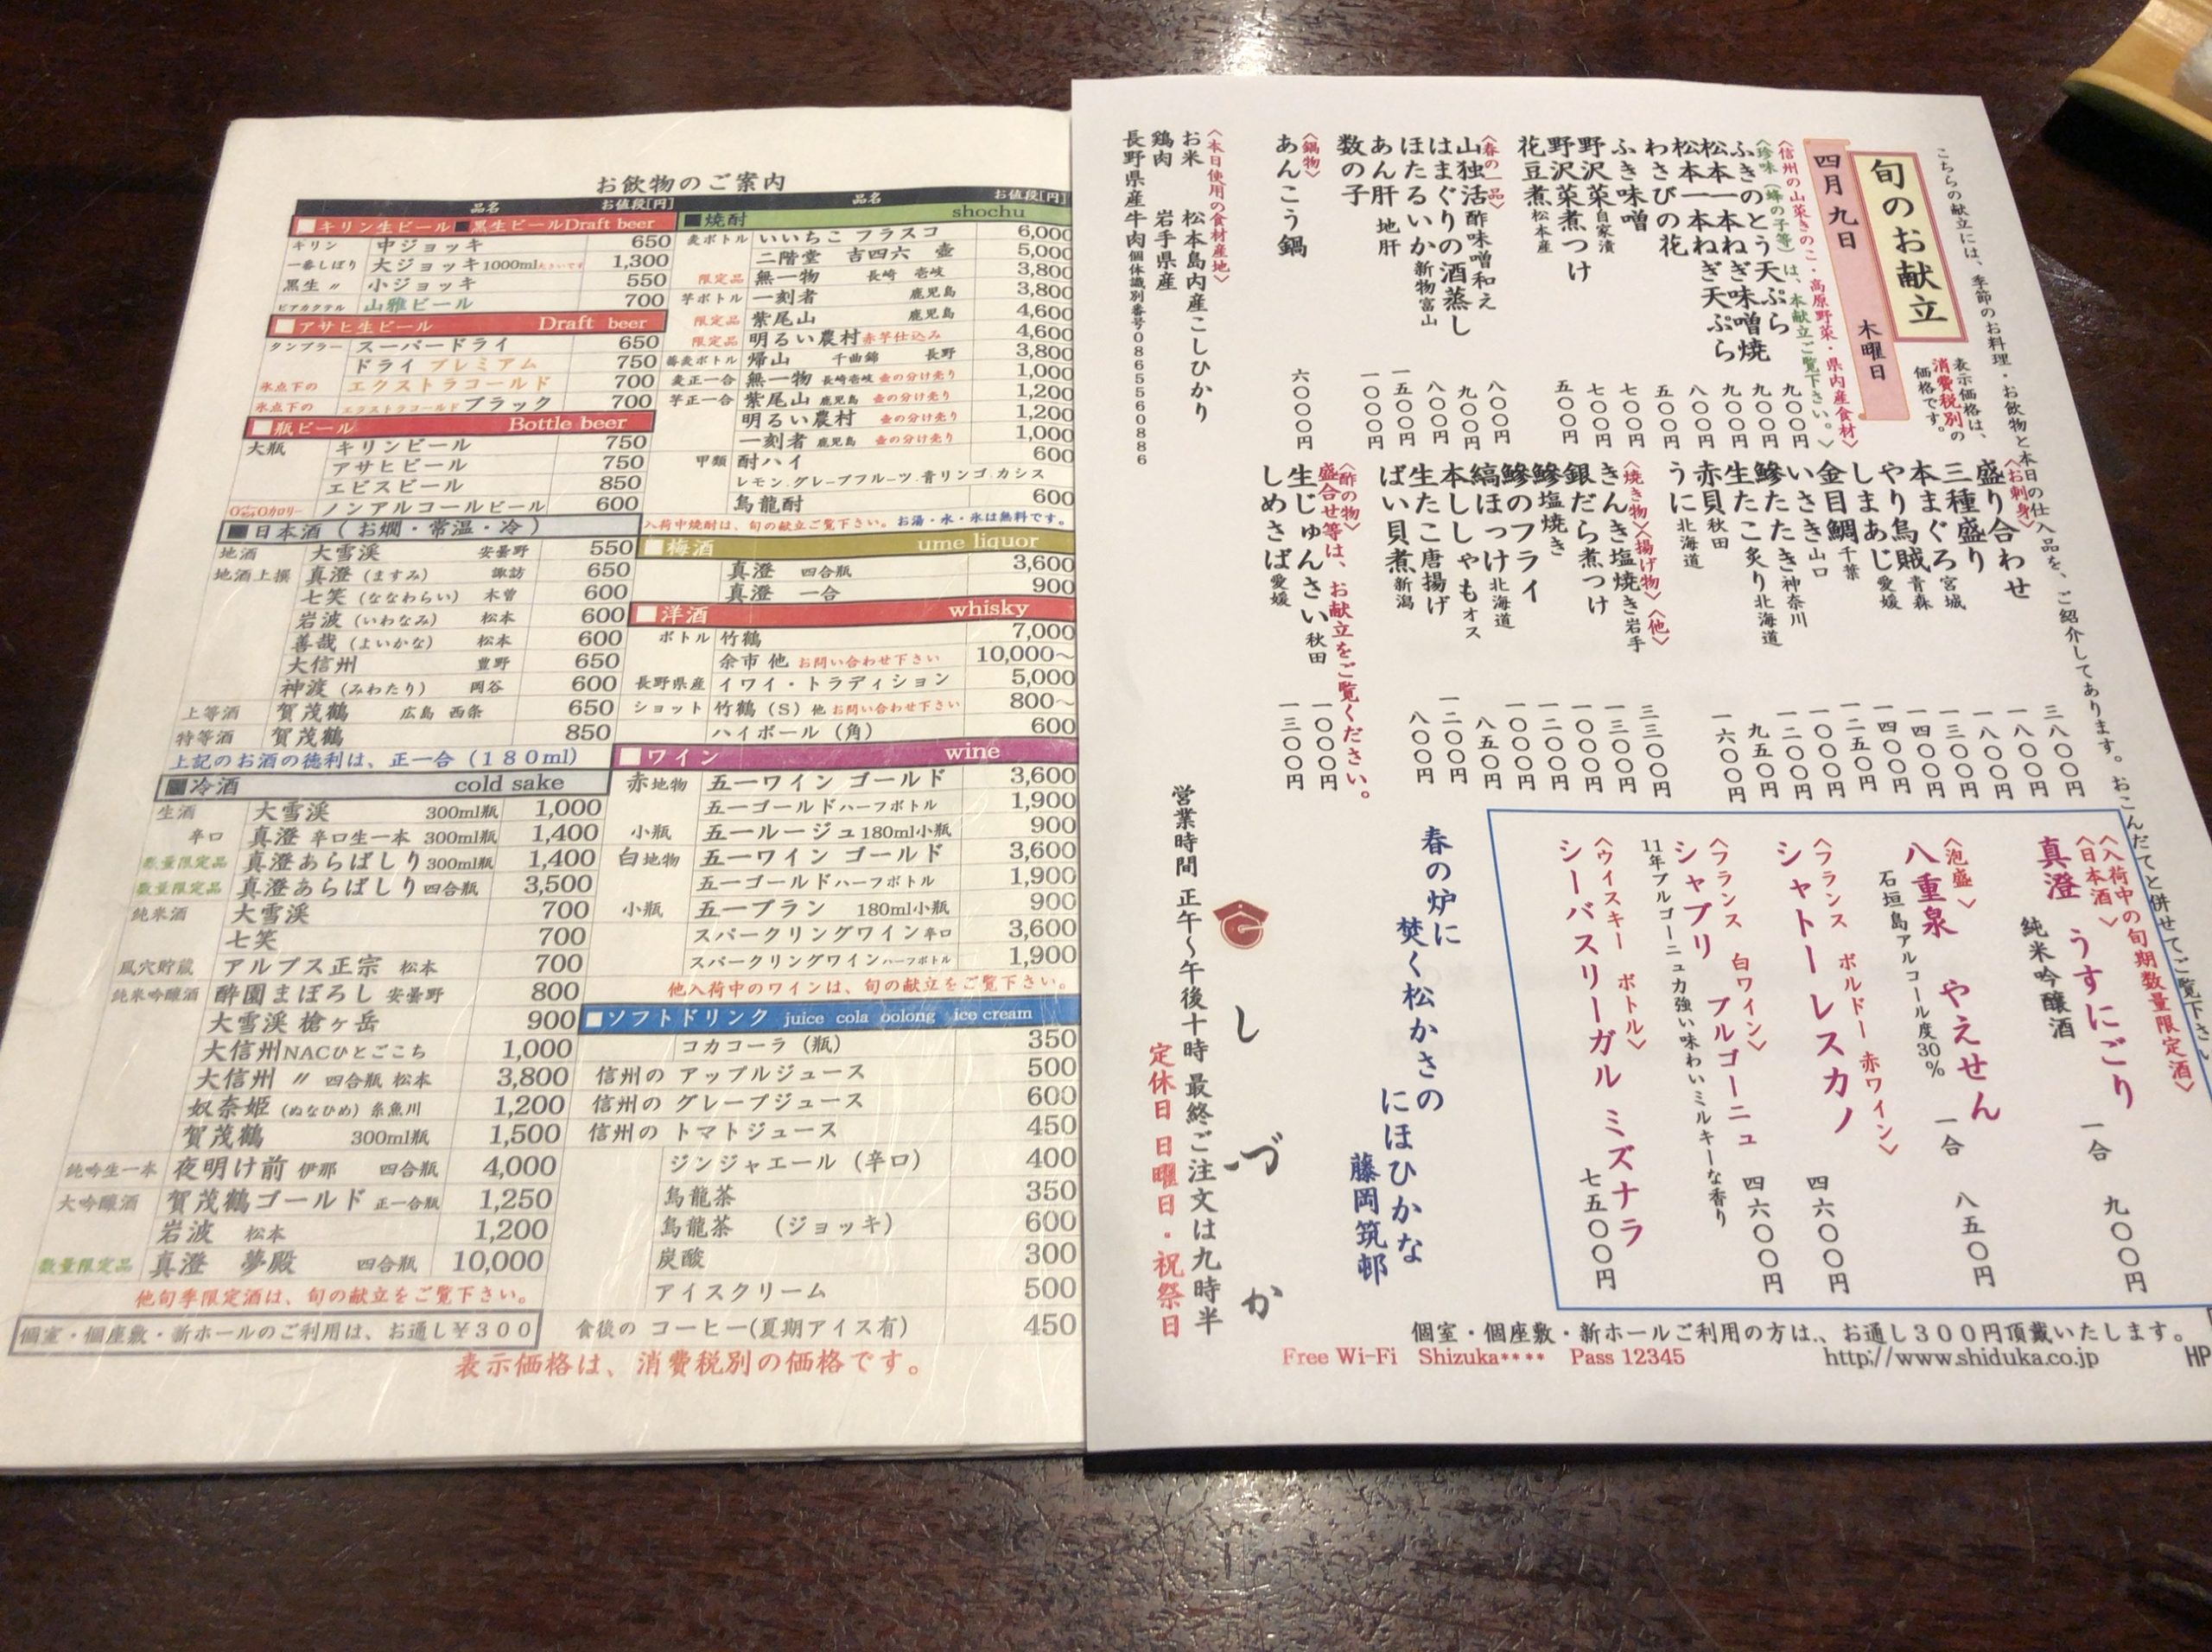 お飲物のご案内
品名 お値段[円]
■キリン生ビール■黒生ビールDraft beer
キリン 中ジョッキ 650
一番しぼり 大ジョッキ1000ml大きいです 1,300
黒生〃 小ジョッキ 550
ビアカクテル 山雅ビール 700
■アサヒ生ビール Draft beer
タンブラー スーパードライ 650
ドライ プレミアム 750
氷点下の エクストラコールド 700
氷点下の エクストラコールド ブラック 700
■瓶ビール Bottle beer
大瓶 キリンビール 750
アサヒビール 750
エビスビール 850
0カロリー ノンアルコールビール 600
■日本酒(お燗・常温・冷)
地酒 大雪渓 安曇野 550
地酒上撰 真澄(ますみ) 諏訪 650
七笑(ななわらい) 木曽 600
岩波(いわなみ) 松本 600
善哉(よいかな) 松本 600
大信州 豊野 650
神渡(みわたり) 岡谷 600
上等酒 賀茂鶴 広島 西条 650
特等酒 賀茂鶴 850
上記のお酒の徳利は、正一合(180ml)
■冷酒 cold sake
生酒 大雪渓 300ml瓶 1,000
辛口 真澄 辛口生一本 300ml瓶 1,400
数量限定品 真澄あらばしり 300ml瓶 1,400
数量限定品 真澄あらばしり 四合瓶 3,500
純米酒 大雪渓 700
七笑 700
風穴貯蔵 アルプス正宗 松本 700
純米吟醸酒 酔園まぼろし 安曇野 800
大雪渓 槍ヶ岳 900
大信州NACひとごこち 1,000
大信州 〃 四合瓶 松本 3,800
奴奈姫(ぬなひめ)糸魚川 1,200
賀茂鶴 300ml瓶 1,500
純吟生一本 夜明け前 伊那 四合瓶 4,000
大吟醸酒 賀茂鶴ゴールド 正一合瓶 1,250
岩波 松本 1,200
数量限定品 真澄 夢殿 四合瓶 10,000
他旬季限定酒は、旬の献立をご覧下さい。
個室・個座敷・新ホールのご利用は、お通し¥300
品名 お値段[円]
■焼酎 shochu
麦ボトル いいちこ フラスコ 6,000
二階堂 吉四六 壷 5,000
限定品 無一物 長崎 壱岐 3,800
芋ボトル 一刻者 鹿児島 3,800
限定品 紫尾山 鹿児島 4,600
限定品 明るい農村 赤芋仕込み 4,600
蕎麦ボトル 帰山 千曲錦 長野 3,800
麦正一合 無一物 長崎壱岐 壷の分け売り 1,000
芋正一合 紫尾山 鹿児島 壷の分け売り 1,200
明るい農村 壷の分け売り 1,200
一刻者 鹿児島 壷の分け売り 1,000
甲類 酎ハイ 600
レモン.グレープフルーツ.青リンゴ.カシス
烏龍酎 600
入荷中焼酎は、旬の献立ご覧下さい。お湯・水・氷は無料です。
■梅酒 ume liquor
真澄 四合瓶 3,600
真澄 一合 900
■洋酒 whisky
ボトル 竹鶴 7,000
余市 他 お問い合わせ下さい 10,000~
長野県産 イワイ・トラディション 5,000
ショット 竹鶴(S)他 お問い合わせ下さい 800~
ハイボール(角) 600
■ワイン wine
赤地物 五一ワイン ゴールド 3,600
五一ゴールドハーフボトル 1,900
小瓶 五一ルージュ180ml小瓶 900
白地物 五一ワイン ゴールド 3,600
五一ゴールドハーフボトル 1,900
小瓶 五一ブラン 180ml小瓶 900
スパークリングワイン辛口 3,600
スパークリングワインハーフボトル 1,900
他入荷中のワインは、旬の献立をご覧下さい。
■ソフトドリンク juice cola oolong ice cream
コカコーラ(瓶) 350
信州の アップルジュース 500
信州の グレープジュース 600
信州の トマトジュース 450
ジンジャエール(辛口) 400
烏龍茶 350
烏龍茶 (ジョッキ) 600
炭酸 300
アイスクリーム 500
食後の コーヒー(夏期アイス有) 450
表示価格は、消費税別の価格です。
こちらの献立には、季節のお料理・お飲物と本日の仕入品を、ご紹介してあります。おこんだてと併せてご覧下さい
旬のお献立
表示価格は、
消費税別の
価格です。
四月九日 木曜日
〈信州の山菜きのこ・高原野菜・県内産食材〉
〈珍味(蜂の子等)は、本献立ご覧下さい。〉
ふきのとう天ぷら 九〇〇円
松本一本ねぎ味噌焼 九〇〇円
松本一本ねぎ天ぷら 九〇〇円
わさびの花 八〇〇円
ふき味噌 五〇〇円
野沢菜 自家漬 七〇〇円
野沢菜煮つけ 七〇〇円
花豆煮 松本産 五〇〇円
〈春の一品〉
山独活 酢味噌和え 八〇〇円
はまぐりの酒蒸し 九〇〇円
ほたるいか 新物富山 八〇〇円
あん肝 地肝 一五〇〇円
数の子 一〇〇〇円
〈鍋物〉
あんこう鍋 六〇〇〇円
〈本日使用の食材産地〉
お米 松本島内産こしひかり
鶏肉 岩手県産
長野県産牛肉個体識別番号0865560886
〈お刺身〉
盛り合わせ 三八〇〇円
三種盛り 一八〇〇円
本まぐろ 宮城 一八〇〇円
やり烏賊 青森 一三〇〇円
しまあじ 愛媛 一四〇〇円
金目鯛 千葉 一四〇〇円
いさき 山口 一二五〇円
鰺たたき 神奈川 一〇〇〇円
生たこ炙り 北海道 一二〇〇円
赤貝 秋田 九五〇円
うに 北海道 一六〇〇円
〈焼き物〉〈揚げ物〉〈他〉
きんき塩焼き 岩手 三三〇〇円
銀だら煮つけ 一三〇〇円
鰺塩焼き 一〇〇〇円
鰺のフライ 一二〇〇円
縞ほっけ 北海道 一〇〇〇円
本ししゃも オス 八五〇円
生たこ唐揚げ 一二〇〇円
ばい貝煮 新潟 八〇〇円
〈酢の物〉
盛合せ等は、お献立をご覧ください。
生じゅんさい 秋田 一〇〇〇円
しめさば 愛媛 一三〇〇円
〈入荷中の旬期数量限定酒〉
〈日本酒〉
真澄 うすにごり 一合 九〇〇円
純米吟醸酒
〈泡盛〉
八重泉 やえせん 一合 八五〇円
石垣島アルコール度30%
〈フランス ボルドー 赤ワイン〉
シャトーレスカノ 四六〇〇円
〈フランス 白ワイン〉
シャブリ ブルゴーニュ 四六〇〇円
11年ブルゴーニュ力強い味わいミルキーな香り
〈ウイスキー ボトル〉
シーバスリーガル ミズナラ 七五〇〇円
春の炉に
焚く松かさの
にほひかな
藤岡筑邨
しづか
営業時間 正午~午後十時 最終ご注文は九時半
定休日 日曜日・祝祭日
個室・個座敷・新ホールご利用の方は、、お通し300円頂戴いたします。
Free Wi-Fi Shizuka**** Pass 12345
http://www.shiduka.co.jp
HP